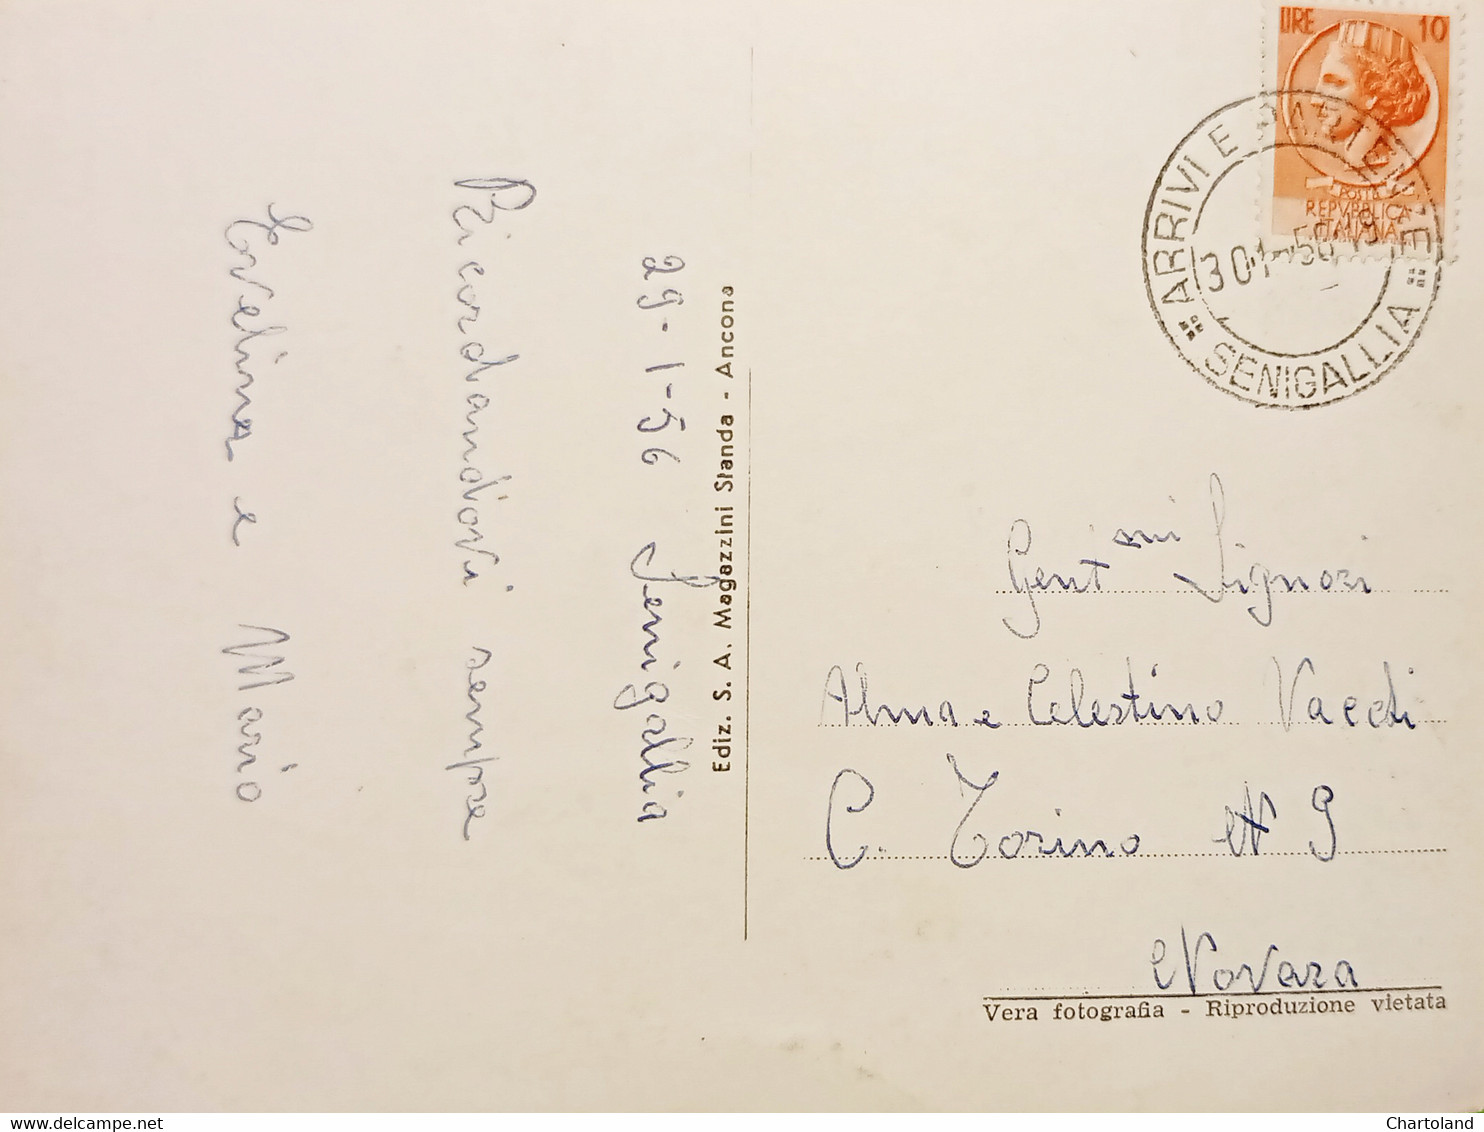 29-1-56 Senigallia
Ricordandovi sempre
Evelina e Mario
Ediz. S. A. Magazzini Standa - Ancona
LIRE 10
POSTE
REPVBBLICA
ITALIANA
ARRIVI E PARTENZE
30.1.-56.19
SENIGALLIA
Gent.mi Signori
Alma e Celestino Vacchi
C. Torino N 9
Novara
Vera fotografia - Riproduzione vietata
www.delcampe.net
Chartoland